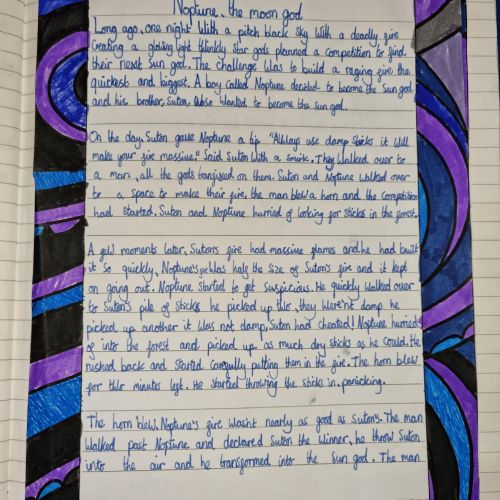 Neptune, the moon god
Long ago, one night With a pitch black sky With a deadly fire
Creating a glowing light thinkly star gods planned a competition to find
their next sun god. The challenge Was to build a raging fire the
quickest and biggest. A boy called Neptune decided to become the Sun god
and his brother, Suton, also Wanted to become the sun god.
On the day, Suton gave Neptune a tip "Always use damp sticks it Will
make your fire massive." Said Suton With a smirk. They Walked over to
a man, all the gods on them. Suton and Neptune Walked over
to a space to make their fire, the man blew a horn and the competition
had started. Suton and Neptune hurried of looking for sticks in the forest.
A few moments later, Suton's fire had massive flames and he had built
it so quickly, Neptune's fire Was half the size of Suton's fire and it kept
on going out. Neptune started to get suspicious. He quickly Walked over
to Suton's pile of sticks he picked up two, they Were'nt damp he
picked up another it Was not damp, Suton had cheated! Neptune hurried
of into the forest and picked up as much dry sticks as he could. He
rushed back and started carefully putting them in the fire. The horn blew
for two minutes left. He started throwing the sticks in, panicking.
The horn blew. Neptune's fire Wasn't nearly as good as Suton's. The man
Walked past Neptune and declared Suton the Winner, he throw Suton
into the air and he transformed into the sun god. The man